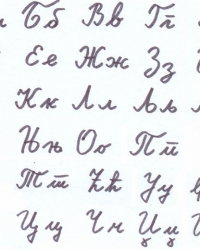 Б б В в Г г
Е е Ж ж З з
К к Л л Љ љ
Њ њ О о П п
Т т Ћ ћ У у
Ц ц Ч ч Џ џ